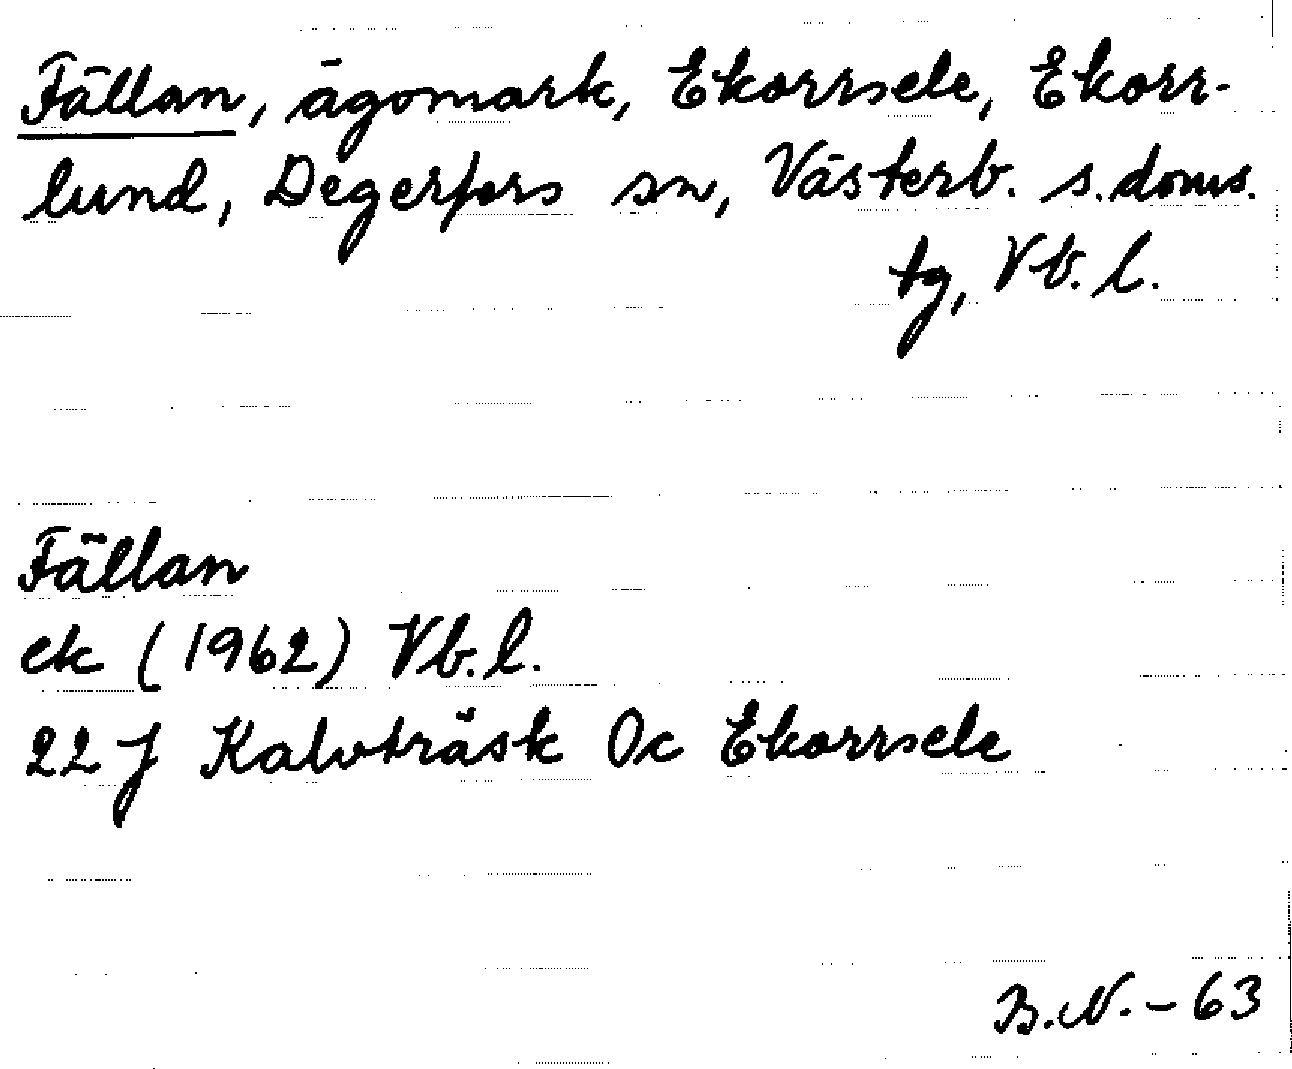 Fällan, ägomark, Ekorrsele, Ekorr-
lund, Degerfors sn, Västerb. s. doms.
tg, Vb. l.
Fällan
ek (1962) Vb. l.
22 J Kalvträsk Oc Ekorrsele
B.N. - 63